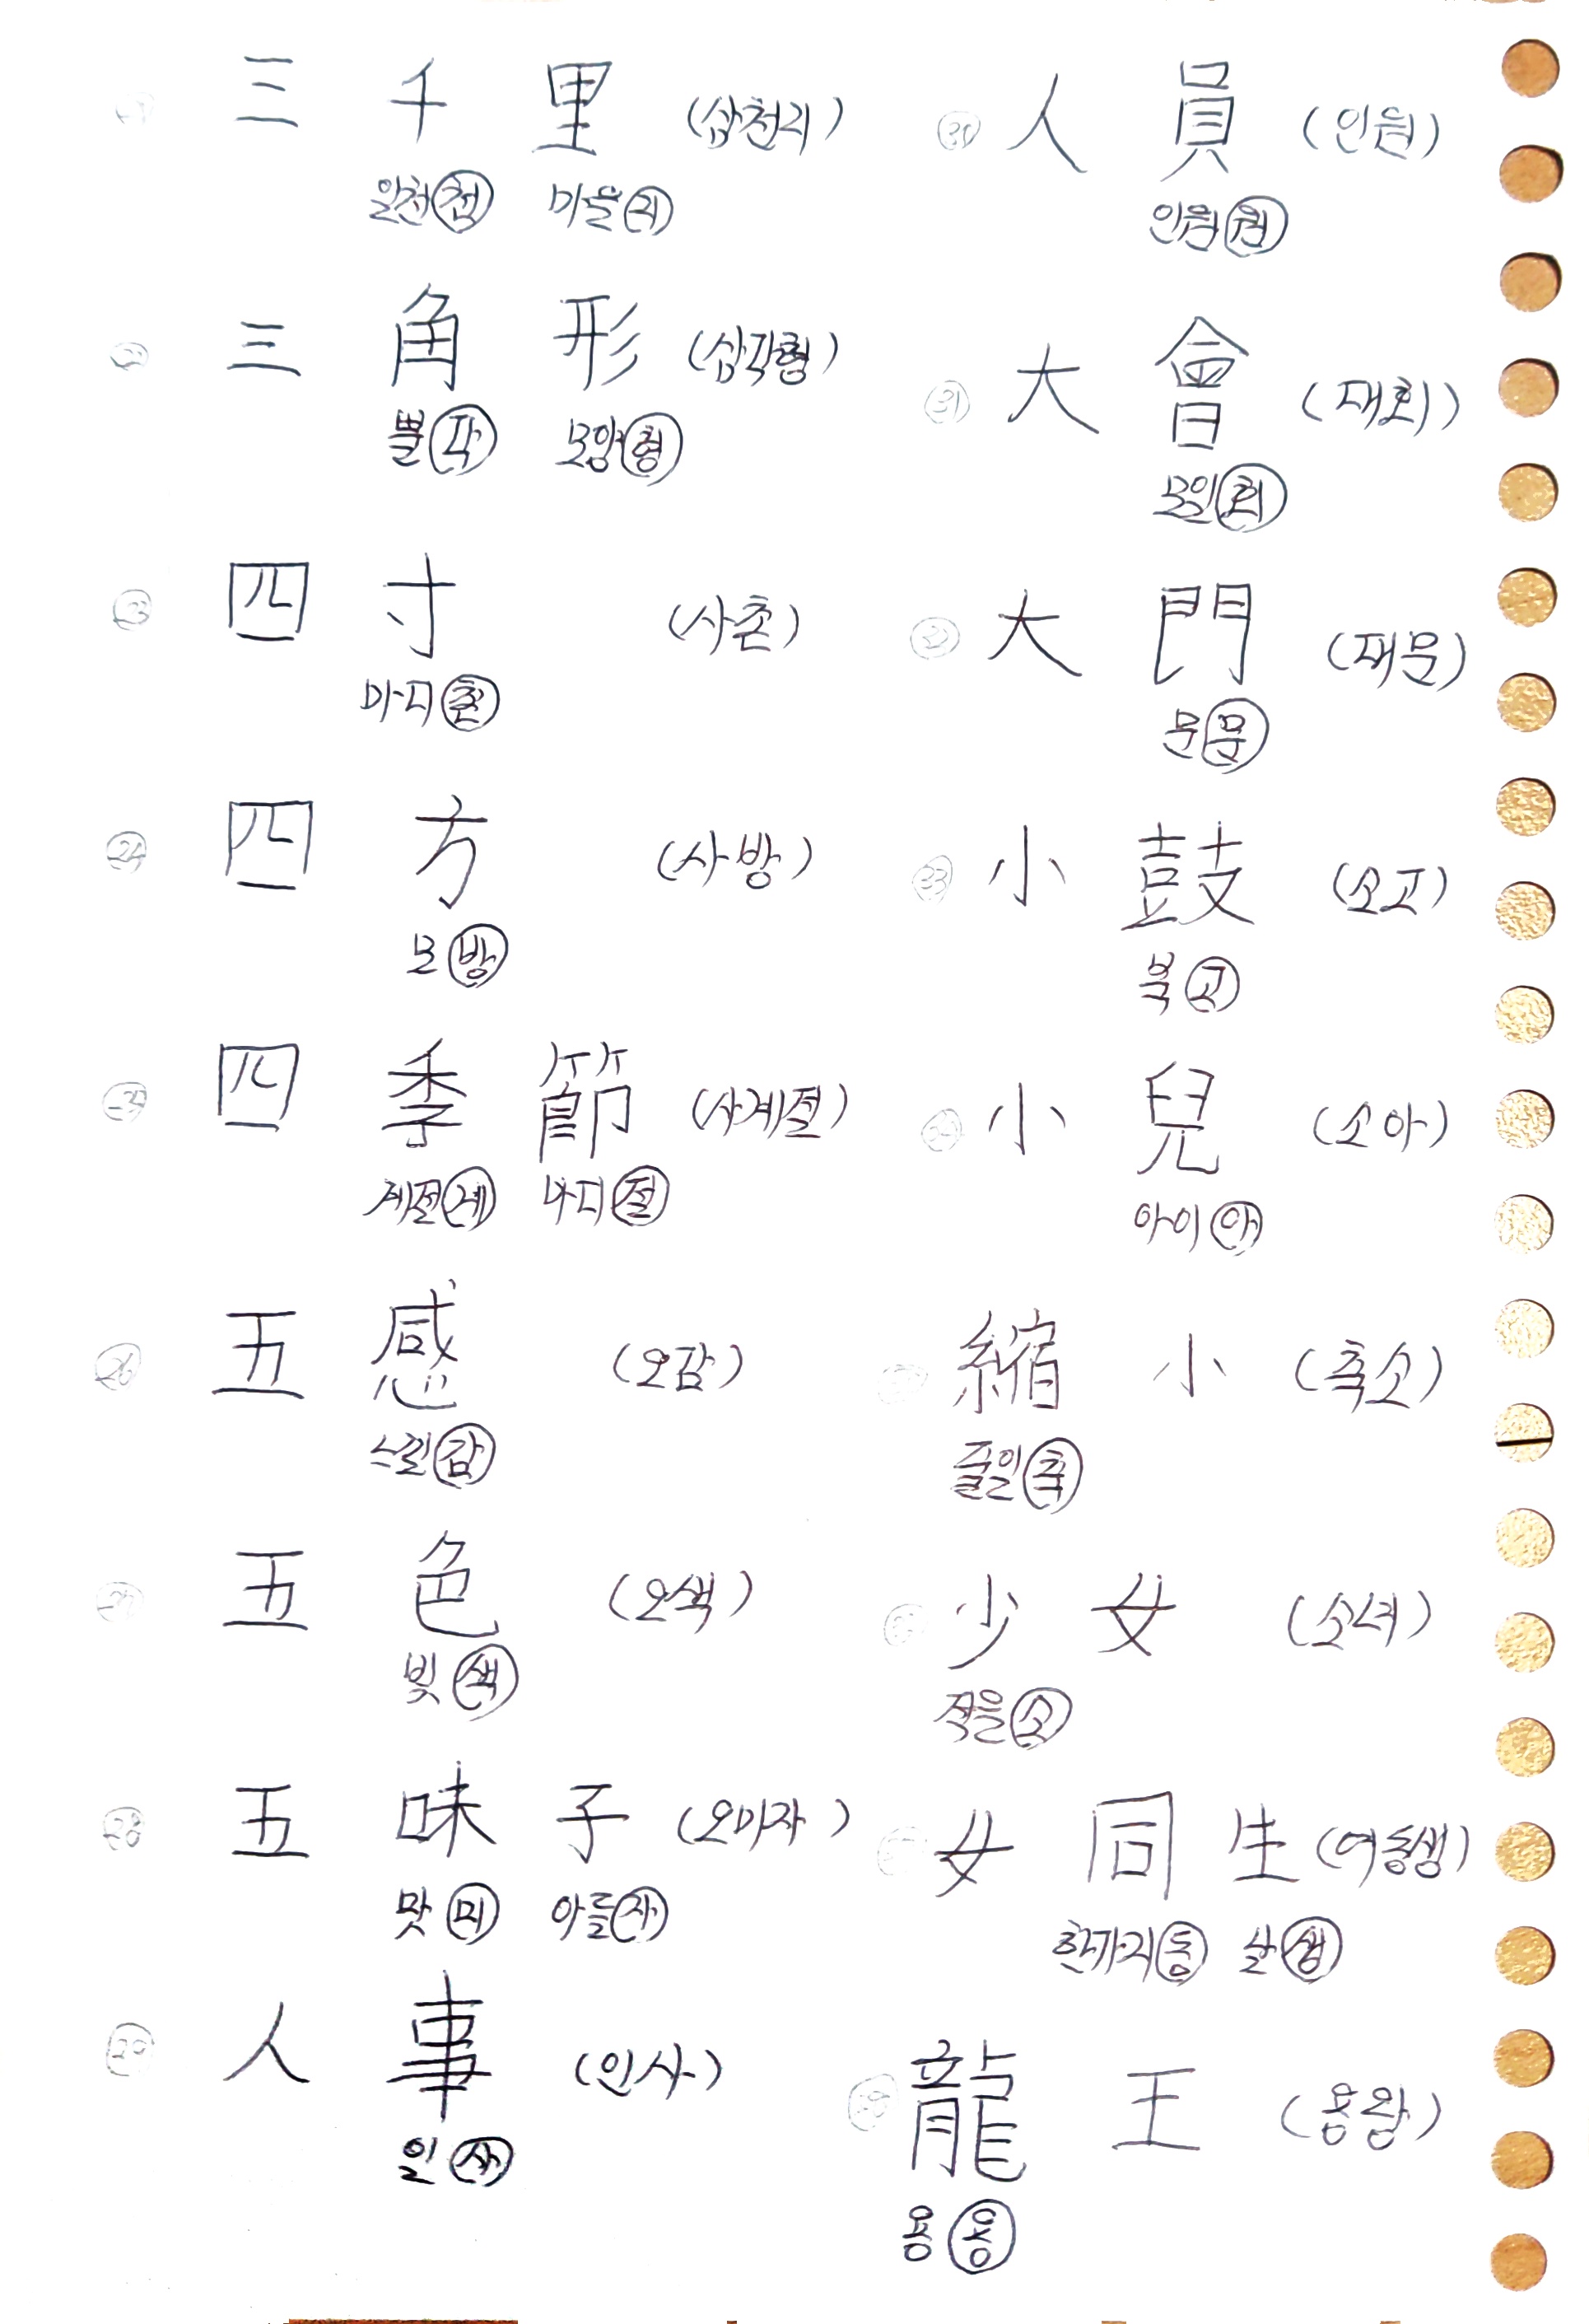 三 千 里 (삼천리)
일천 천 마을 리
三 角 形 (삼각형)
뿔 각 모양 형
23 四 寸 (사촌)
마디 촌
24 四 方 (사방)
모 방
四 季 節 (사계절)
계절 계 마디 절
26 五 感 (오감)
느낄 감
27 五 色 (오색)
빛 색
28 五 味 子 (오미자)
맛 미 아들 자
29 人 事 (인사)
일 사
30 人 員 (인원)
인원 원
31 大 會 (대회)
모일 회
32 大 門 (대문)
문 문
33 小 鼓 (소고)
북 고
小 兒 (소아)
아이 아
縮 小 (축소)
줄일 축
少 女 (소녀)
적을 소
女 同 生 (여동생)
한가지 동 살 생
龍 王 (용왕)
용 용